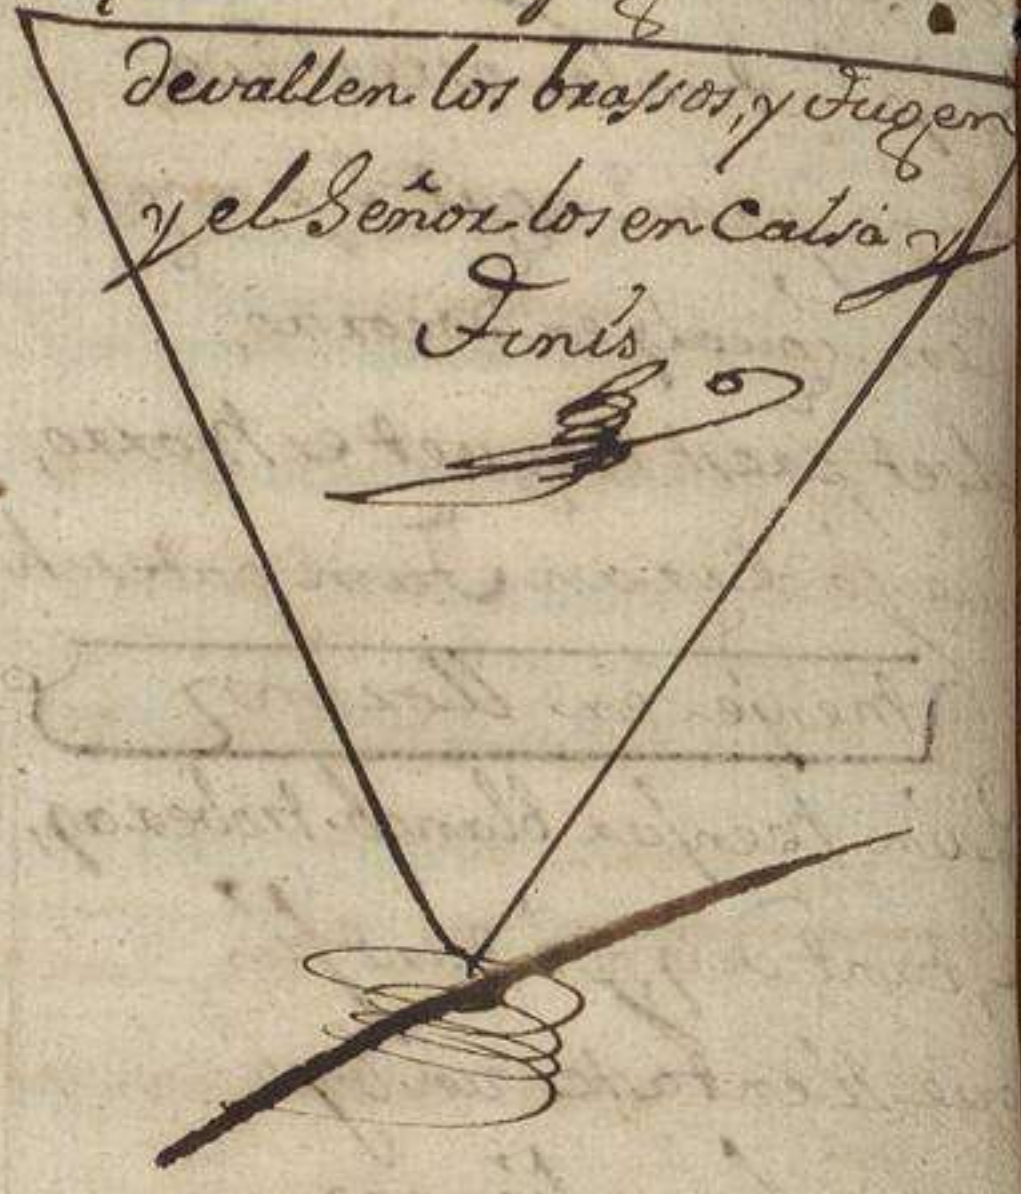 devallen los brassos, y Fugen
y el Señor los en Calsá y
Finis